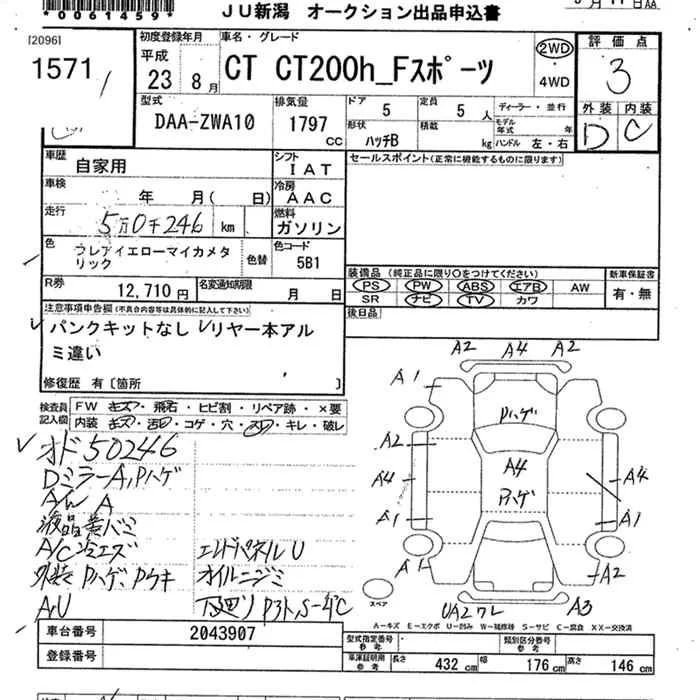 *0061459*
JU新潟 オークション出品申込書
[2096]
1571
初度登録年月
平成
23
8月
車名・グレード
CT CT200h_Fスポーツ
2WD
4WD
評価点
3
外装 内装
D C
型式
DAA-ZWA10
排気量
1797
CC
ドア
5
定員
5
人
形状
ハッチB
積載
kg
ディーラー・並行
モデル年式 年
ハンドル 左・右
車歴
自家用
シフト
IAT
セールスポイント(正常に機能するものに限ります)
車検
年 月( 日)
冷房
AAC
走行
5万0千246
km
燃料
ガソリン
色
フレアイエローマイカメタリック
色替
色コード
5B1
R券
12,710 円
名変通知期限
月 日
装備品(純正品に限り○をつけてください)
PS PW ABS エアB AW
SR ナビ TV カワ
新車保証書
有・無
後日品
注意事項申告欄(不具合内容等は具体的に記入して下さい)
パンクキットなし レリヤー本アル
ミ違い
修復歴 有[箇所 ]
検査員
記入欄
FW キズ・飛石・ヒビ割・リペア跡・×要
内装 キズ・汚れ・コゲ・穴・スレ・キレ・破レ
オド50246
DミラーA,Pハゲ
A/W A
液晶黄バミ
A/C冷エズ
外装 Pハゲ、Pウキ
A,U
エンドパネル U
オイルニジミ
下廻り P3ト,S-4℃
A2 A4 A2
A1
Pハゲ
A2
A4
A4
A4
Pハゲ
A1
A1
A1
A2
スペア
UA2ワレ
A3
A-キズ E-エクボ U-凹み W-補修跡 S-サビ C-腐食 XX-交換済
車台番号
2043907
登録番号
型式指定番号
参考
類別区分番号
参考
車庫証明用
参考
長さ
432 cm
幅
176 cm
高さ
146 cm